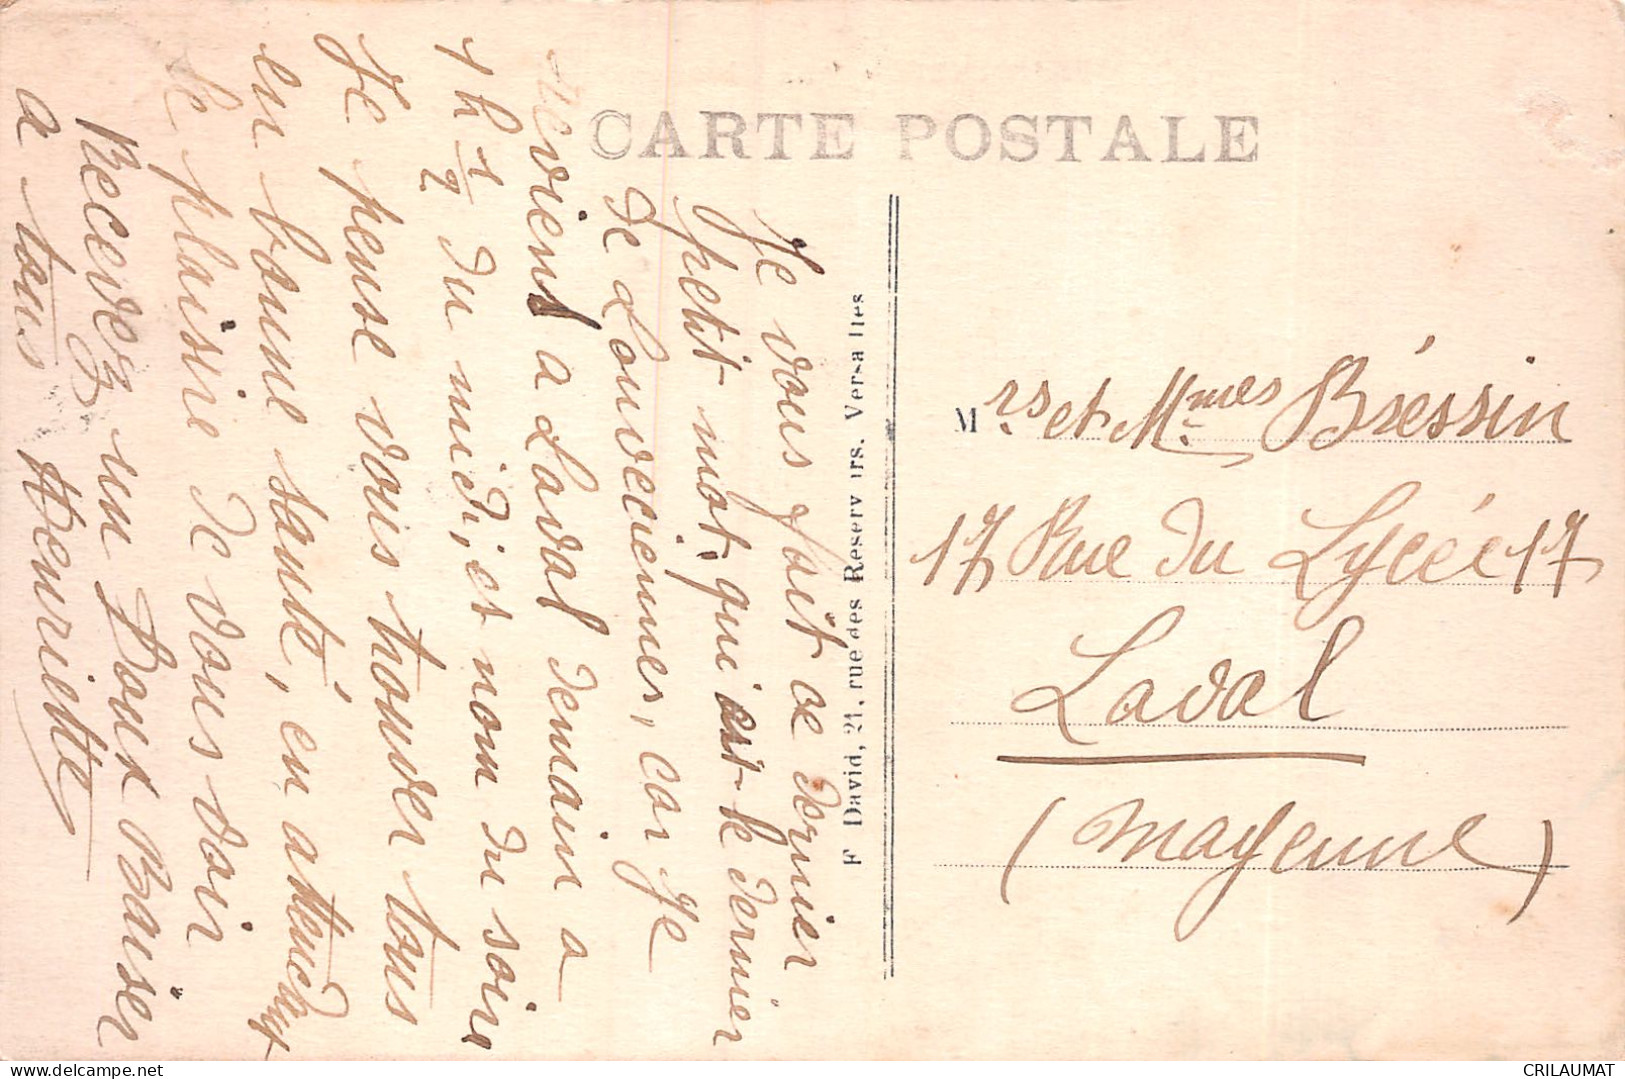 CARTE POSTALE
Je vous fait ce dernier
petit mot, qui est le dernier
de Louveciennes, car je
reviens a Laval demain a
1h 1/2 du midi, et non du soir
Je pense vous trouver tous
en bonne santé, en attendant
le plaisir de vous voir
Recevez un Doux Baiser
a tous Henriette
F David, 21, rue des Reserv irs. Versailles
Mrs et Mmes Bréssin
17 Rue du Lycée 17
Laval
(Mayenne)
CRILAUMAT